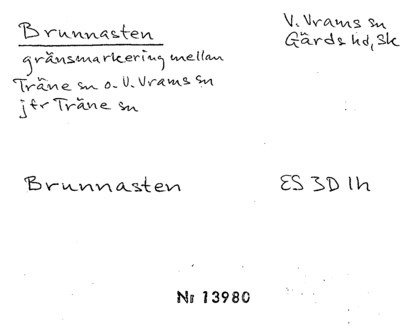 Brunnasten
V. Vrams sn
Gärds hd, Sk
gränsmarkering mellan
Träne sn o. V. Vrams sn
jfr Träne sn
Brunnasten
ES 3D 1h
Nr 13980